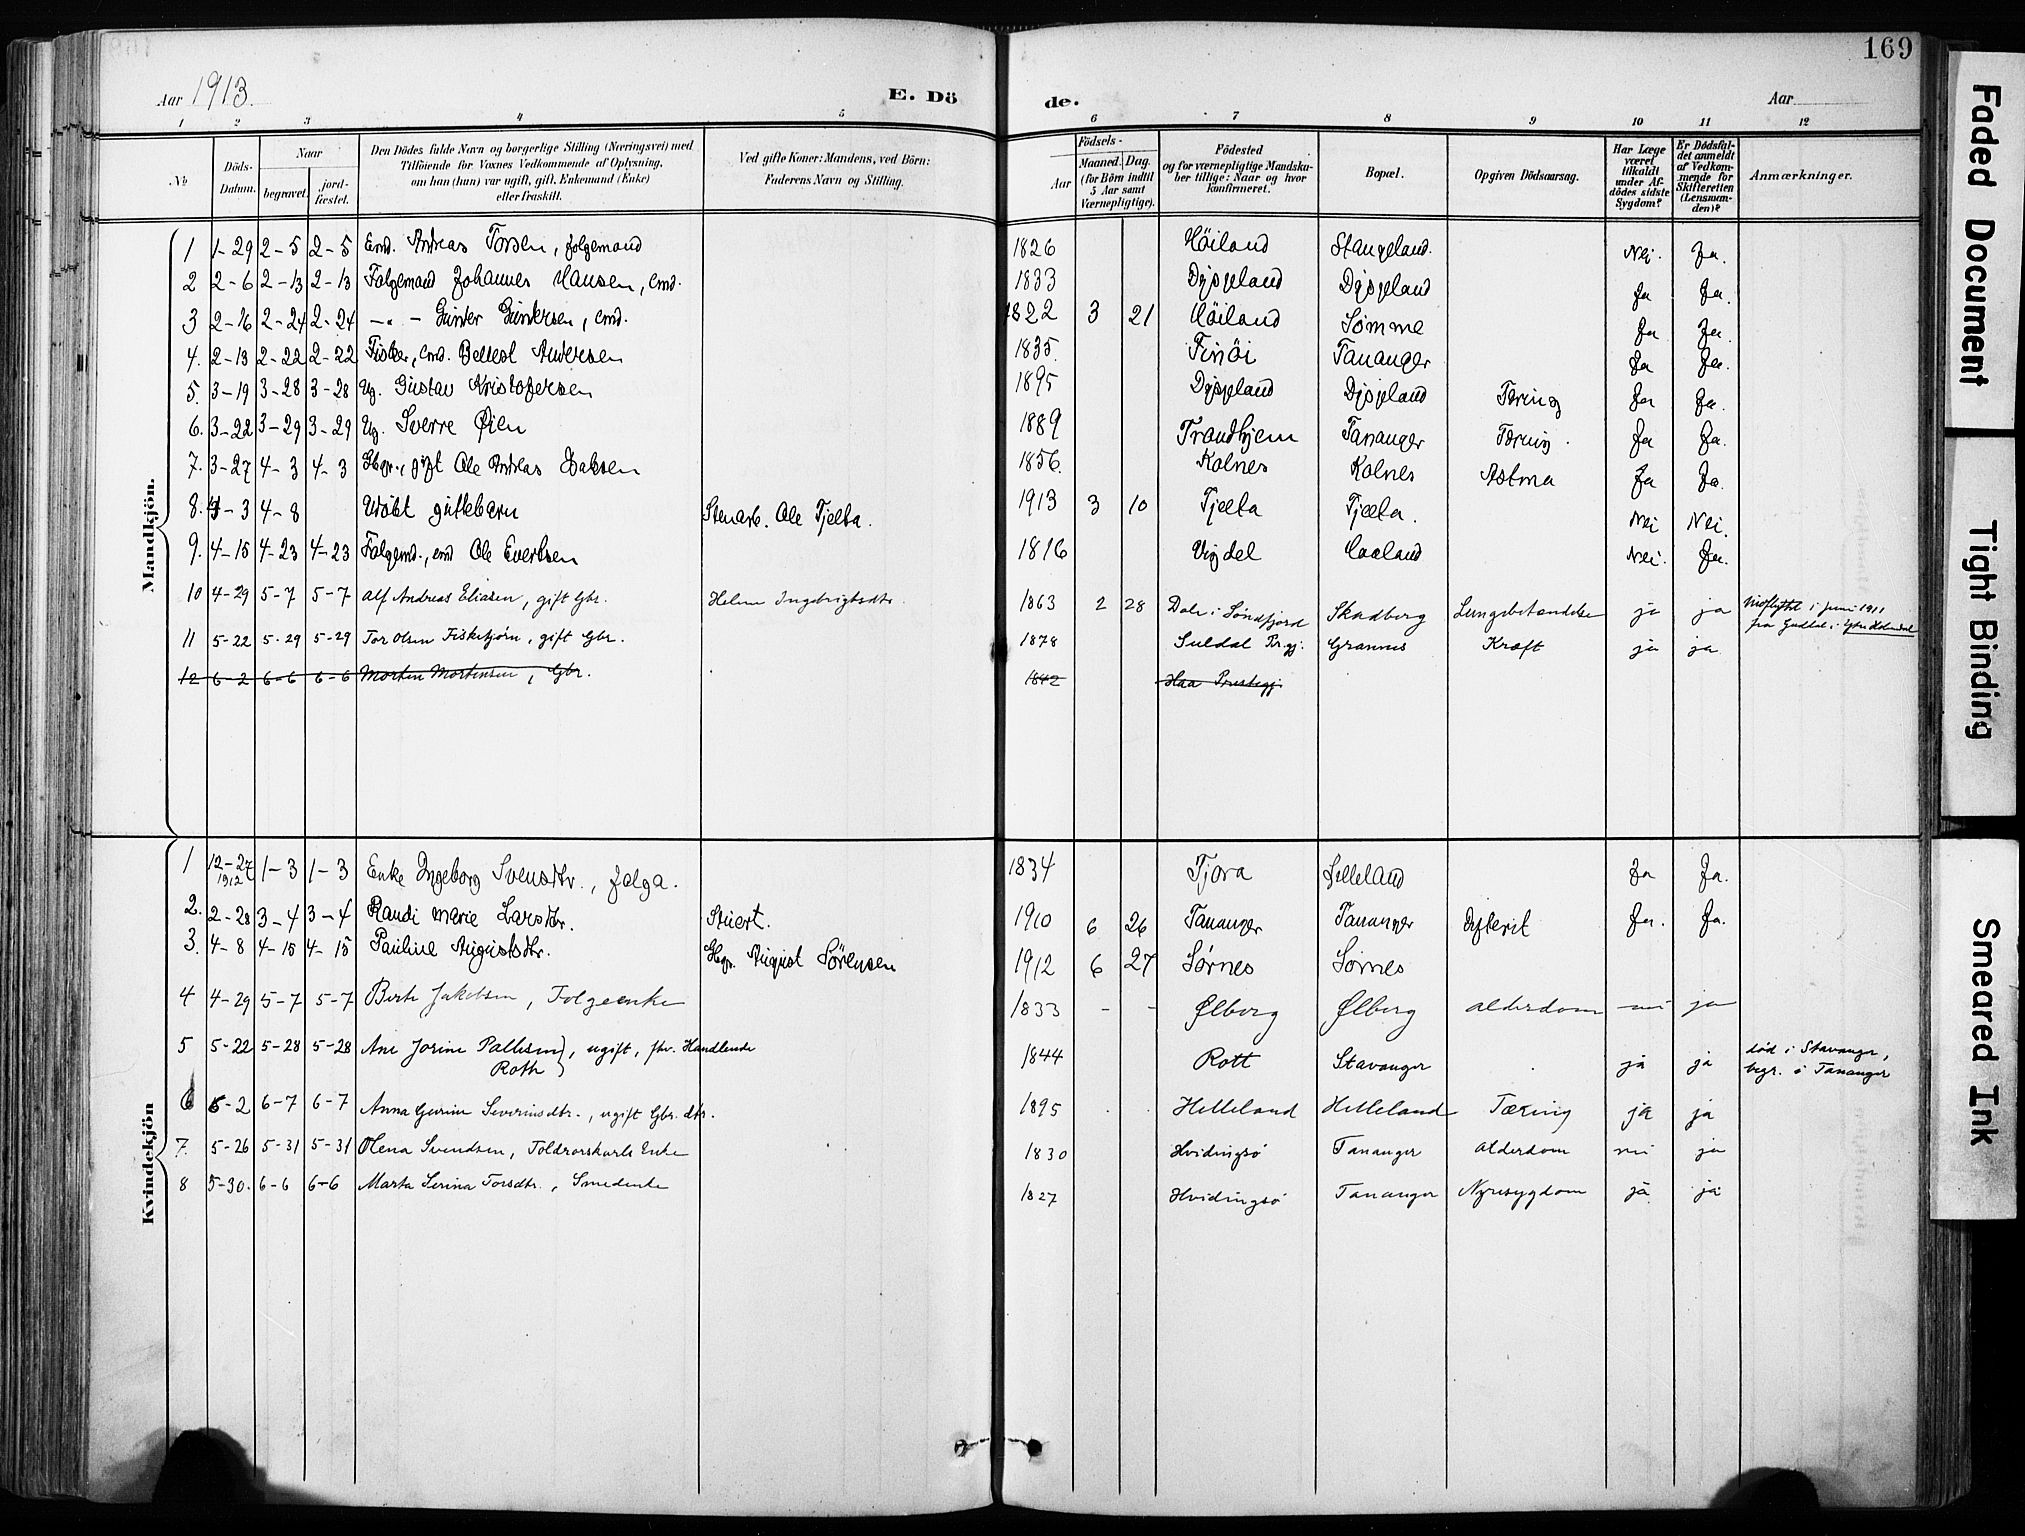 169
Aar 1913.
E. Dö
de.
Aar
1 2 3 4 5 6 7 8 9 10 11 12
No.
Döds-Datum.
Naar
begravet.
jord-fæstet.
Den Dödes fulde Navn og borgerlige Stilling (Næringsvei) med
Tilföiende for Voxnes Vedkommende af Oplysning,
om han (hun) var ugift, gift, Enkemand (Enke)
eller fraskilt.
Ved gifte Koner: Mandens, ved Börn:
Faderens Navn og Stilling.
Födsels-
Aar
Maaned. Dag.
(for Börn indtil
5 Aar samt
Værnepligtige).
Födested
og for værnepligtige Mandska-
ber tillige: Naar og hvor
konfirmeret.
Bopæl.
Opgiven Dödsaarsag.
Har Læge
været
tilkaldt
under Af-
dödes sidste
Sygdom?
Er Dödsfal-
det anmeldt
af Vedkom-
mende for
Skifteretten
(Lensman-
den)?
Anmærkninger.
Mandkjön.
1 1-29 2-5 2-5 Emd. Andreas Torsen, folgemand 1826 Höiland Stangeland. Nei. Ja.
2 2-6 2-13 2-13 Folgemand Johannes Hansen, emd. 1833 Dysjeland Dysjeland Ja Ja.
3 2-16 2-24 2-24 -"- Gunder Gundersen, emd. 1822 3 21 Höiland Sømme Ja Ja.
4. 2-13 2-22 2-22 Fisker, emd. Berent Andersen 1835. Finöi Tananger Ja Ja.
5. 3-19 3-28 3-28 Ug. Gustav Kristofersen 1895 Dysjeland Dysjeland Tæring Ja Ja.
6. 3-22 3-29 3-29 Ug. Sverre Øien 1889 Trondhjem Tananger Tæring. Ja Ja.
7. 3-27 4-3 4-3 Gbr., gift Ole Andreas Isaksen 1856. Kolnes Kolnes Astma Ja Ja.
8. 4-3 4-8 Udöbt guttebarn Stenarb. Ole Tjelta. 1913 3 10 Tjelta Tjelta. Nei Nei.
9. 4-15 4-23 4-23 Folgemd., emd Ole Evertsen 1816 Vigdel Haaland Nei. Ja.
10 4-29 5-7 5-7 Alf Andreas Eliasen, gift Gbr. Helene Ingebrigtsdtr. 1863 2 28 Dale i Söndfjord Skadberg Lungebetændelse ja ja Indflyttet i juni 1911
fra Guddal i Ytre Holmedal
11 5-22 5-29 5-29 Tor Olsen Fisketjørn, gift Gbr. 1878 Suldal Pr.gj. Grannes Kræft ja ja
12 6-2 6-6 6-6 Morten Mortensen, Gbr. 1842 Haa Prestegj.
Kvindekjön
1 12-27 1912 1-3 1-3 Enke Ingeborg Svensdtr., folga. 1834 Tjora Jelleland Ja Ja.
2. 2-28 3-4 3-4 Randi Marie Larsdtr. Stuert. 1910 6 26 Tananger Tananger Dyfterit Ja. Ja.
3. 4-8 4-15 4-15 Pauline Augustsdtr. Gbr. August Sörensen 1912 6 27 Sørnes Sørnes
4 4-29 5-7 5-7 Berte Jakobsen, Folgeenke 1833 - - Ølberg Ølberg Alderdom nei ja
5 5-22 5-28 5-28 Ane Jorine Pallesen
Roth, ugift, fhv. Handlende 1844 Rott Stavanger ja ja död i Stavanger,
begr. i Tananger
6 6-2 6-7 6-7 Anna Gurine Severinsdtr., ugift Gbr. dtr. 1895 Helleland Helleland Tæring ja ja
7. 5-26 5-31 5-31 Olena Svendsen, Toldrorskarls Enke 1830 Hvidingsö Tananger Alderdom nei ja
8 5-30. 6-6 6-6 Marta Serina Torsdtr., Smedenke 1827 Hvidingsö Tananger Nyresygdom ja ja
Faded Document
Tight Binding
Smeared Ink